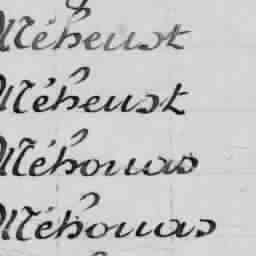 Méheust
Méheust
Méhouas
Méhouas